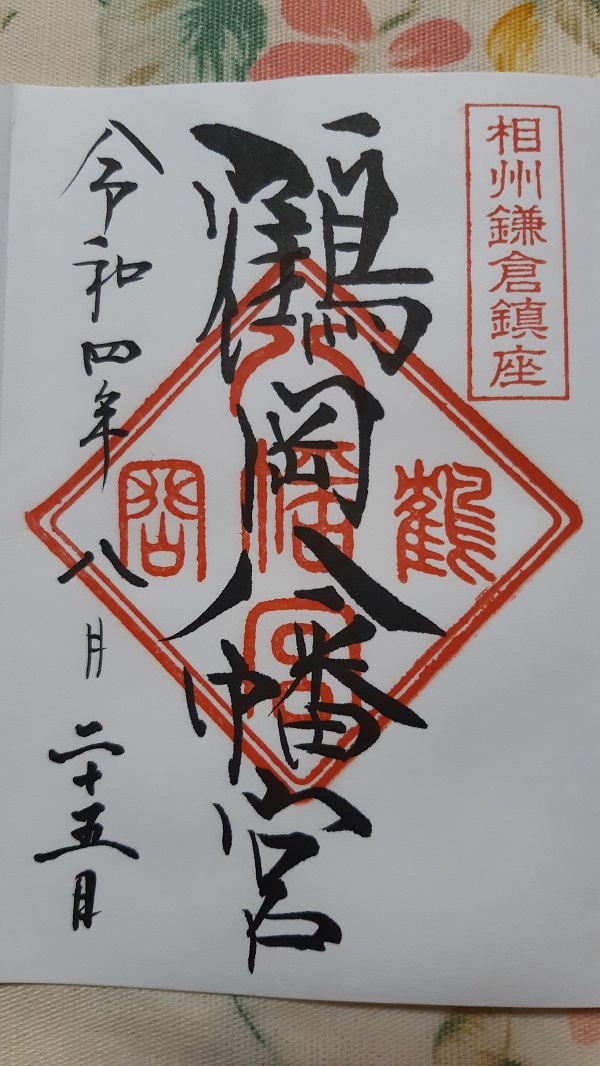 相州鎌倉鎮座
鶴岡八幡宮
鶴岡八幡宮
令和四年八月二十五日